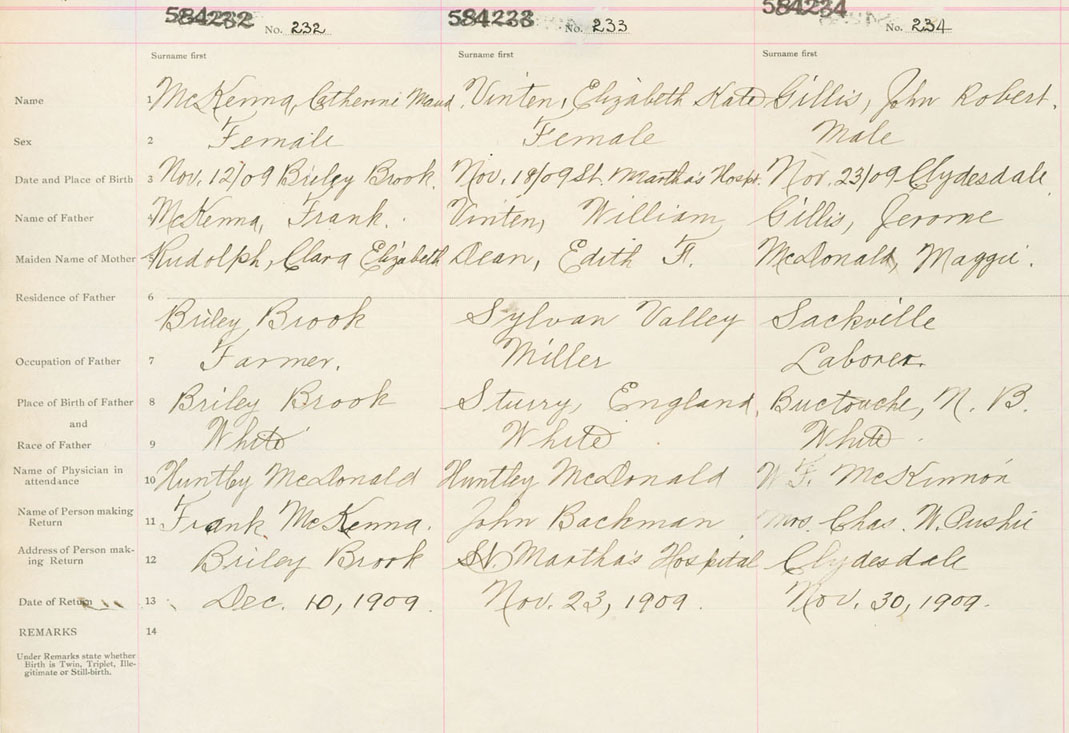 584232 No. 232 584233 No. 233 584234 No. 234
Surname first Surname first Surname first
Name 1 McKenna, Catherine Maud Vinten, Elizabeth Kate Gillis, John Robert.
Sex 2 Female Female Male
Date and Place of Birth 3 Nov. 12/09 Briley Brook. Nov. 18/09 St. Martha's Hospt. Nov. 23/09 Clydesdale
Name of Father McKenna, Frank. Vinten, William Gillis, Jerome
Maiden Name of Mother Rudolph, Clara Elizabeth Dean, Edith F. McDonald, Maggie.
Residence of Father 6
Briley Brook Sylvan Valley Sackville
Occupation of Father 7 Farmer. Miller Laborer.
Place of Birth of Father 8 Briley Brook Sturry, England, Buctouche, N. B.
and
Race of Father 9 White White White
Name of Physician in
attendance 10 Huntley McDonald Huntley McDonald W. F. McKinnon
Name of Person making
Return 11 Frank McKenna. John Backman Mrs. Chas. W. Pushie
Address of Person mak-
ing Return 12 Briley Brook St. Martha's Hospital Clydesdale
Date of Return 13 Dec. 10, 1909. Nov. 23, 1909. Nov. 30, 1909.
REMARKS 14
Under Remarks state whether
Birth is Twin, Triplet, Ille-
gitimate or Still-birth.